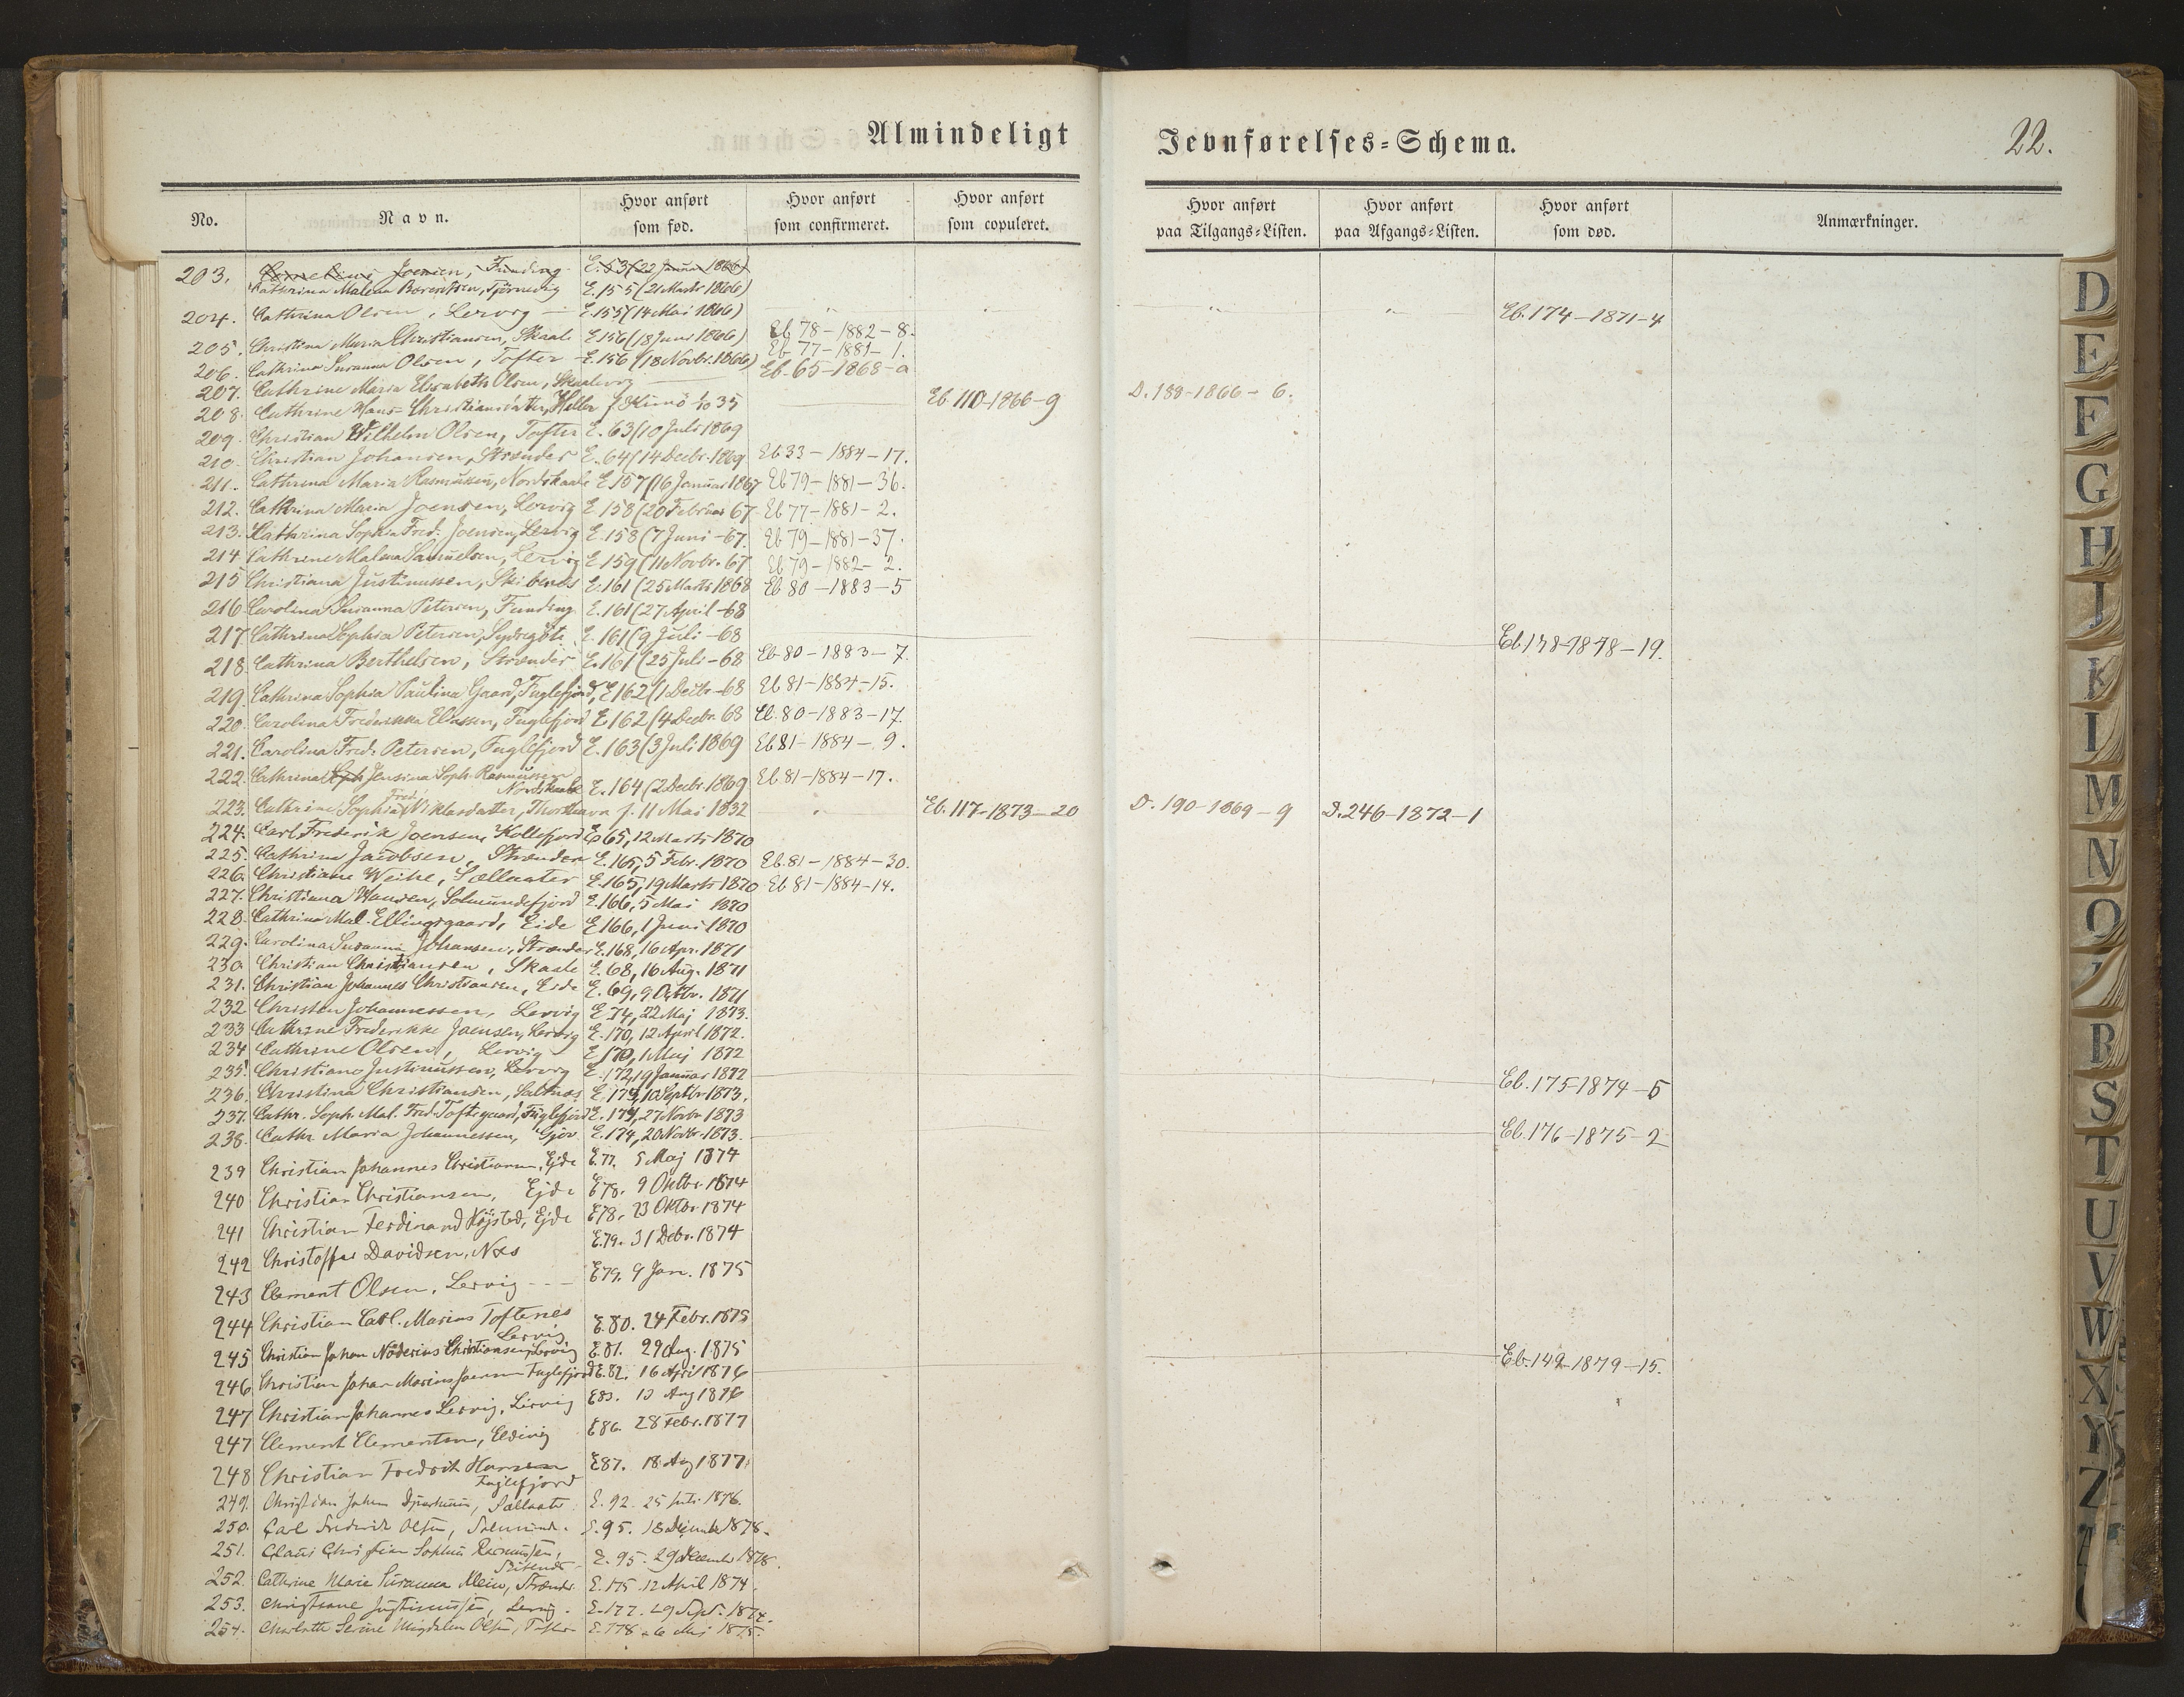 Almindeligt Jevnførelses=Schema. 22.
No. Navn. Hvor anført som fød. Hvor anført som confirmeret. Hvor anført som copuleret. Hvor anført paa Tilgangs=Listen. Hvor anført paa Afgangs=Listen. Hvor anført som død. Anmærkninger.
203. Cornelius Joensen, Funding E. 53 (22 Januar 1866)
Cathrina Malena Berentsen, Tjørnevig E. 155 (21 Marts 1866)
204. Cathrina Olsen, Lervig E. 155 (14 Mai 1866) Eb. 174-1871-4
205. Christina Maria Christiansen, Skaale E. 156 (18 Juni 1866) Eb 78-1882-8.
206. Cathrina Susanna Olsen, Tofter E. 156 (18 Novbr. 1866) Eb 77-1881-1.
207. Cathrine Maria Elisabeth Olsen, Skaalevig Eb. 65-1868-a
208. Cathrine Hans-Christiansdatter, Heller f. 1/10 35 Eb. 110-1866-9 D. 188-1866-6.
209. Christian Wilhelm Olsen, Tofter E. 63 (10 Juli 1869
210. Christian Johansen, Strænder E. 64 (14 Decbr. 1869 Eb 33-1884-17.
211. Cathrina Maria Rasmussen, Nordskaale E 157 (16 Januar 1867 Eb 79-1881-36.
212. Cathrina Maria Joensen, Lervig E. 158 (20 Februar 67 Eb 77-1881-2.
213. Kathrina Sophia Fred. Joensen, Lervig E. 158 (7 Juni -67. Eb 79-1881-37.
214 Cathrine Malena Samuelsen, Lervig E 159 (11 Novbr. 67 Eb 79-1882-2.
215 Christiana Justinussen, Skibenæs E. 161 (25 Marts 1868 Eb 80-1883-5
216 Carolina Susanna Petersen, Funding E. 161 (27 April -68
217 Cathrina Sophia Petersen, Sydregøte E. 161 (9 Juli -68 Eb. 178-1878-19.
218. Cathrina Berthelsen, Strænder E. 161 (25 Juli -68 Eb 80-1883-7
219. Cathrina Sophia Paulina Gaard, Fuglefjord, E 162 (1 Decbr -68 Eb 81-1884-15.
220. Carolina Frederikka Eliassen, Fuglefjord E 162 (4 Decbr. 68 Eb. 80-1883-17.
221. Carolina Fred. Petersen, Fuglefjord E. 163 (3 Juli 1869 Eb 81-1884-9.
222. Cathrina Sph Jensina Soph. Rasmussen
Nordskaale E. 164 (2 Decbr. 1869 Eb 81-1884-17.
223. Cathrine Sophia Fred. Niklasdatter, Thorshavn f. 11 Mai 1832 Eb. 117-1873-20 D. 190-1869-9 D. 246-1872-1
224. Carl Frederik Joensen, Kollefjord E 65, 12 Marts 1870
225. Cathrina Jacobsen, Strænder E. 165, 5 Febr. 1870 Eb. 81-1884-30.
226. Christiane Weihe, Sællaater E. 165, 19 Marts 1870 Eb 81-1884-14.
227. Christiana Hansen, Solmundefjord E. 166, 5 Mai 1870
228. Cathrina Mal. Ellingsgaard, Eide E 166, 1 Juni 1870
229. Carolina Susanna Johansen, Strænder E. 168, 16 Apr. 1871
230 Christian Christiansen, Skaale E. 68, 16 Aug. 1871
231. Christian Johannes Christiansen, Eide E. 69, 9 Octbr. 1871
232 Christen Johannessen, Lervig E. 74, 22 Maj 1873.
233 Cathrine Frederikke Joensen, Lervig E. 170, 12 April 1872.
234 Cathrine Olsen, Lervig E 170, 1 Maj 1872
235. Christiane Justinussen, Lervig E. 172, 19 Januar 1872 Eb. 175-1874-5
236. Christina Christiansen, Saltnæs E. 174, 10 Septbr 1873.
237. Cathr. Soph. Mal. Fred. Toftegaard, Fuglefjord E. 174, 27 Novbr 1873
238. Cathr. Maria Johannessen, Gjov E. 174, 20 Novbr. 1873. Eb. 176-1875-2
239 Christian Johannes Christiansen, Ejde E. 77. 5 Maj 1874
240 Christian Christiansen, Ejde E 78. 9 Oktbr. 1874
241 Christian Ferdinand Højsted, Ejde E 78. 23 Oktbr. 1874
242 Christoffer Davidsen, Næs E. 79. 31 Debr. 1874
243 Clement Olsen, Lervig E 79. 9 Jan. 1875
244 Christian Carl. Marius Toftenes
Lervig E. 80. 24 Febr. 1875
245 Christian Johan Christiansen, Lervig E. 81. 29 Aug. 1875
246 Christian Johan Marius Joensen Fuglefjord E. 82. 16 April 1876 Eb. 149-1879-15.
247 Christian Johannes Lervig, Lervig E 83. 13 Aug 1876
247 Clement Clementsen, Eldevig E 86. 28 Febr. 1877
248 Christian Fredrik Hansen
Fuglefjord E 87. 18 Aug 1877.
249. Christian Johan, Sællaater. E. 92. 25 1878.
250. Carl Frederik Olsen, Solmund. E. 95. 18 December 1878.
251. Claus Christian Sophus Rasmussen, E. 95. 29 December 1878.
252. Cathrine Marie Susanna Klein, Strænder E. 175. 12 April 1874.
253. Christiane Justinussen, Lervig. E. 177. 29 Sept. 1874.
254. Charlotte Serine Magdalen Olsen, Tofter E. 178. 6 Maj 1875.
D
E
F
G
H
J
K
L
M
N
O
R
S
T
U
V
W
X
Y
Z